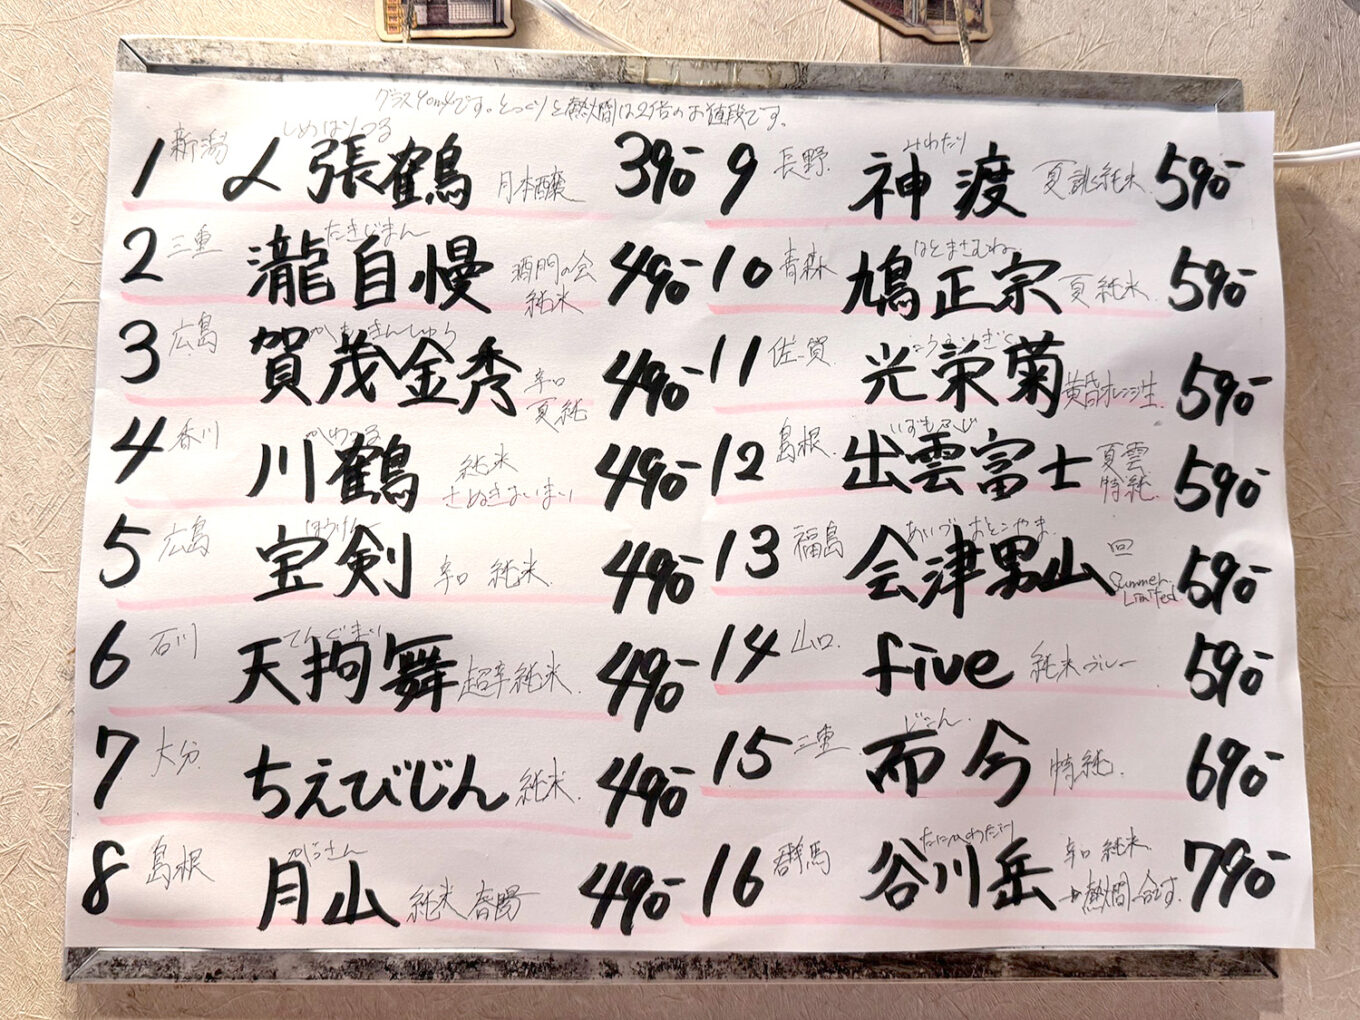 グラス90mlです。とっくりと熱燗は2倍のお値段です。
1 新潟 しめはりつる 〆張鶴 月 本醸 390-
2 三重 たきじまん 瀧自慢 酒門の会 純米 490-
3 広島 かもきんしゅう 賀茂金秀 辛口 夏純 490-
4 香川 かわつる 川鶴 純米 さぬきよいまい 490-
5 広島 ほうけん 宝剣 辛口 純米 490-
6 石川 てんぐまい 天狗舞 超辛純米 490-
7 大分 ちえびじん 純米 490-
8 島根 がっさん 月山 純米 490-
9 長野 みわたり 神渡 夏誂純米 590-
10 青森 はとまさむね 鳩正宗 夏純米 590-
11 佐賀 こうえいぎく 光栄菊 黄昏オレンジ生 590-
12 島根 いずもふじ 出雲富士 夏雲 特純 590-
13 福島 あいづおとこやま 会津男山 回 Summer Limited 590-
14 山口 five 純米 ブルー 590-
15 三重 じこん 而今 特純 690-
16 群馬 たにがわだけ 谷川岳 辛口 純米 →熱燗合です。 790-